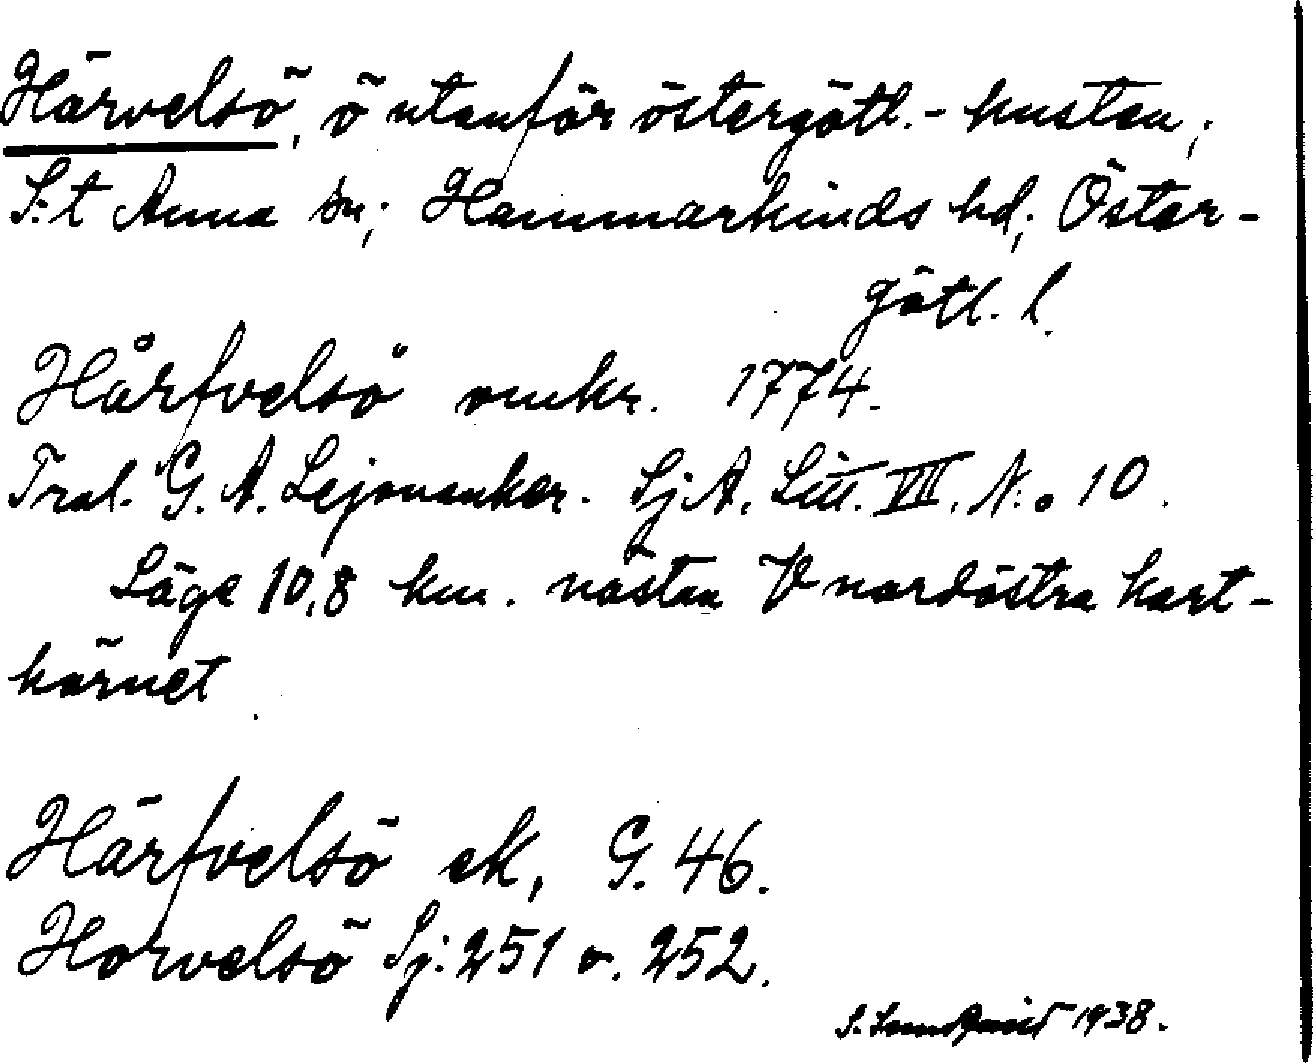 Härvelsö, ö utanför östergötl.-kusten;
S:t Anna sn; Hammarkinds hd; Öster-
götl. l.
Hårfvelsö omkr. 1774.
Tral. G. A. Lejonanker. Sj A. Litt. VII. N:o 10.
Läge 10,8 km. nästan V nordöstra kart-
hörnet
Härfvelsö ek, G. 46.
Horvelsö Sj: 251 o. 252.
S. 1938.